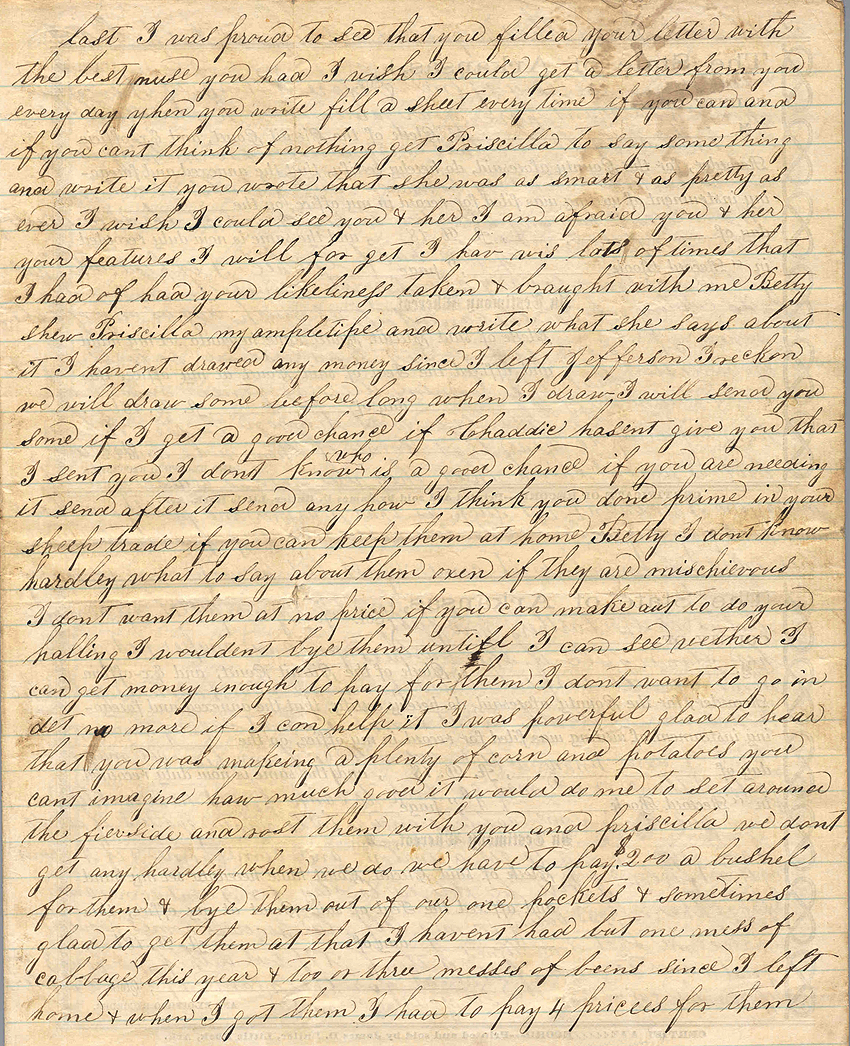 last I was proud to see that you filled your letter with
the best nuse you had I wish I could get a letter from you
every day yhen you write fill a sheet every time if you can and
if you cant think of nothing get Priscilla to say some thing
and write it you wrote that she was as smart & as pretty as
ever I wish I could see you & her I am afraid you & her
your features I will for get I hav wis lots of times that
I had of had your likeliness taken & braught with me Betty
shew Priscilla my ampletipe and write what she says about
it I havent drawed any money since I left Jefferson I reckon
we will draw some before long when I draw I will send you
some if I get a good chance if Chaddic hasent give you that
I sent you I dont know who is a good chance if you are needing
it send after it send any how I think you done prime in your
sheep trade if you can keep them at home Betty I dont know
hardley what to say about them oxen if they are mischievous
I dont want them at no price if you can make out to do your
halling I wouldent bye them untill I can see vether I
can get money enough to pay for them I dont want to go in
det no more if I can help it I was powerful glad to hear
that you was makeing a plenty of corn and potatoes you
cant imagine haw much good it would do me to set around
the fierside and rost them with you and priscilla we dont
get any hardley when we do we have to pay $200 a bushel
for them & bye them out of our one pockets & sometimes
glad to get them at that I havent had but one mess of
cabbage this year & too or three messes of beens since I left
home & when I got them I had to pay 4 pricees for them